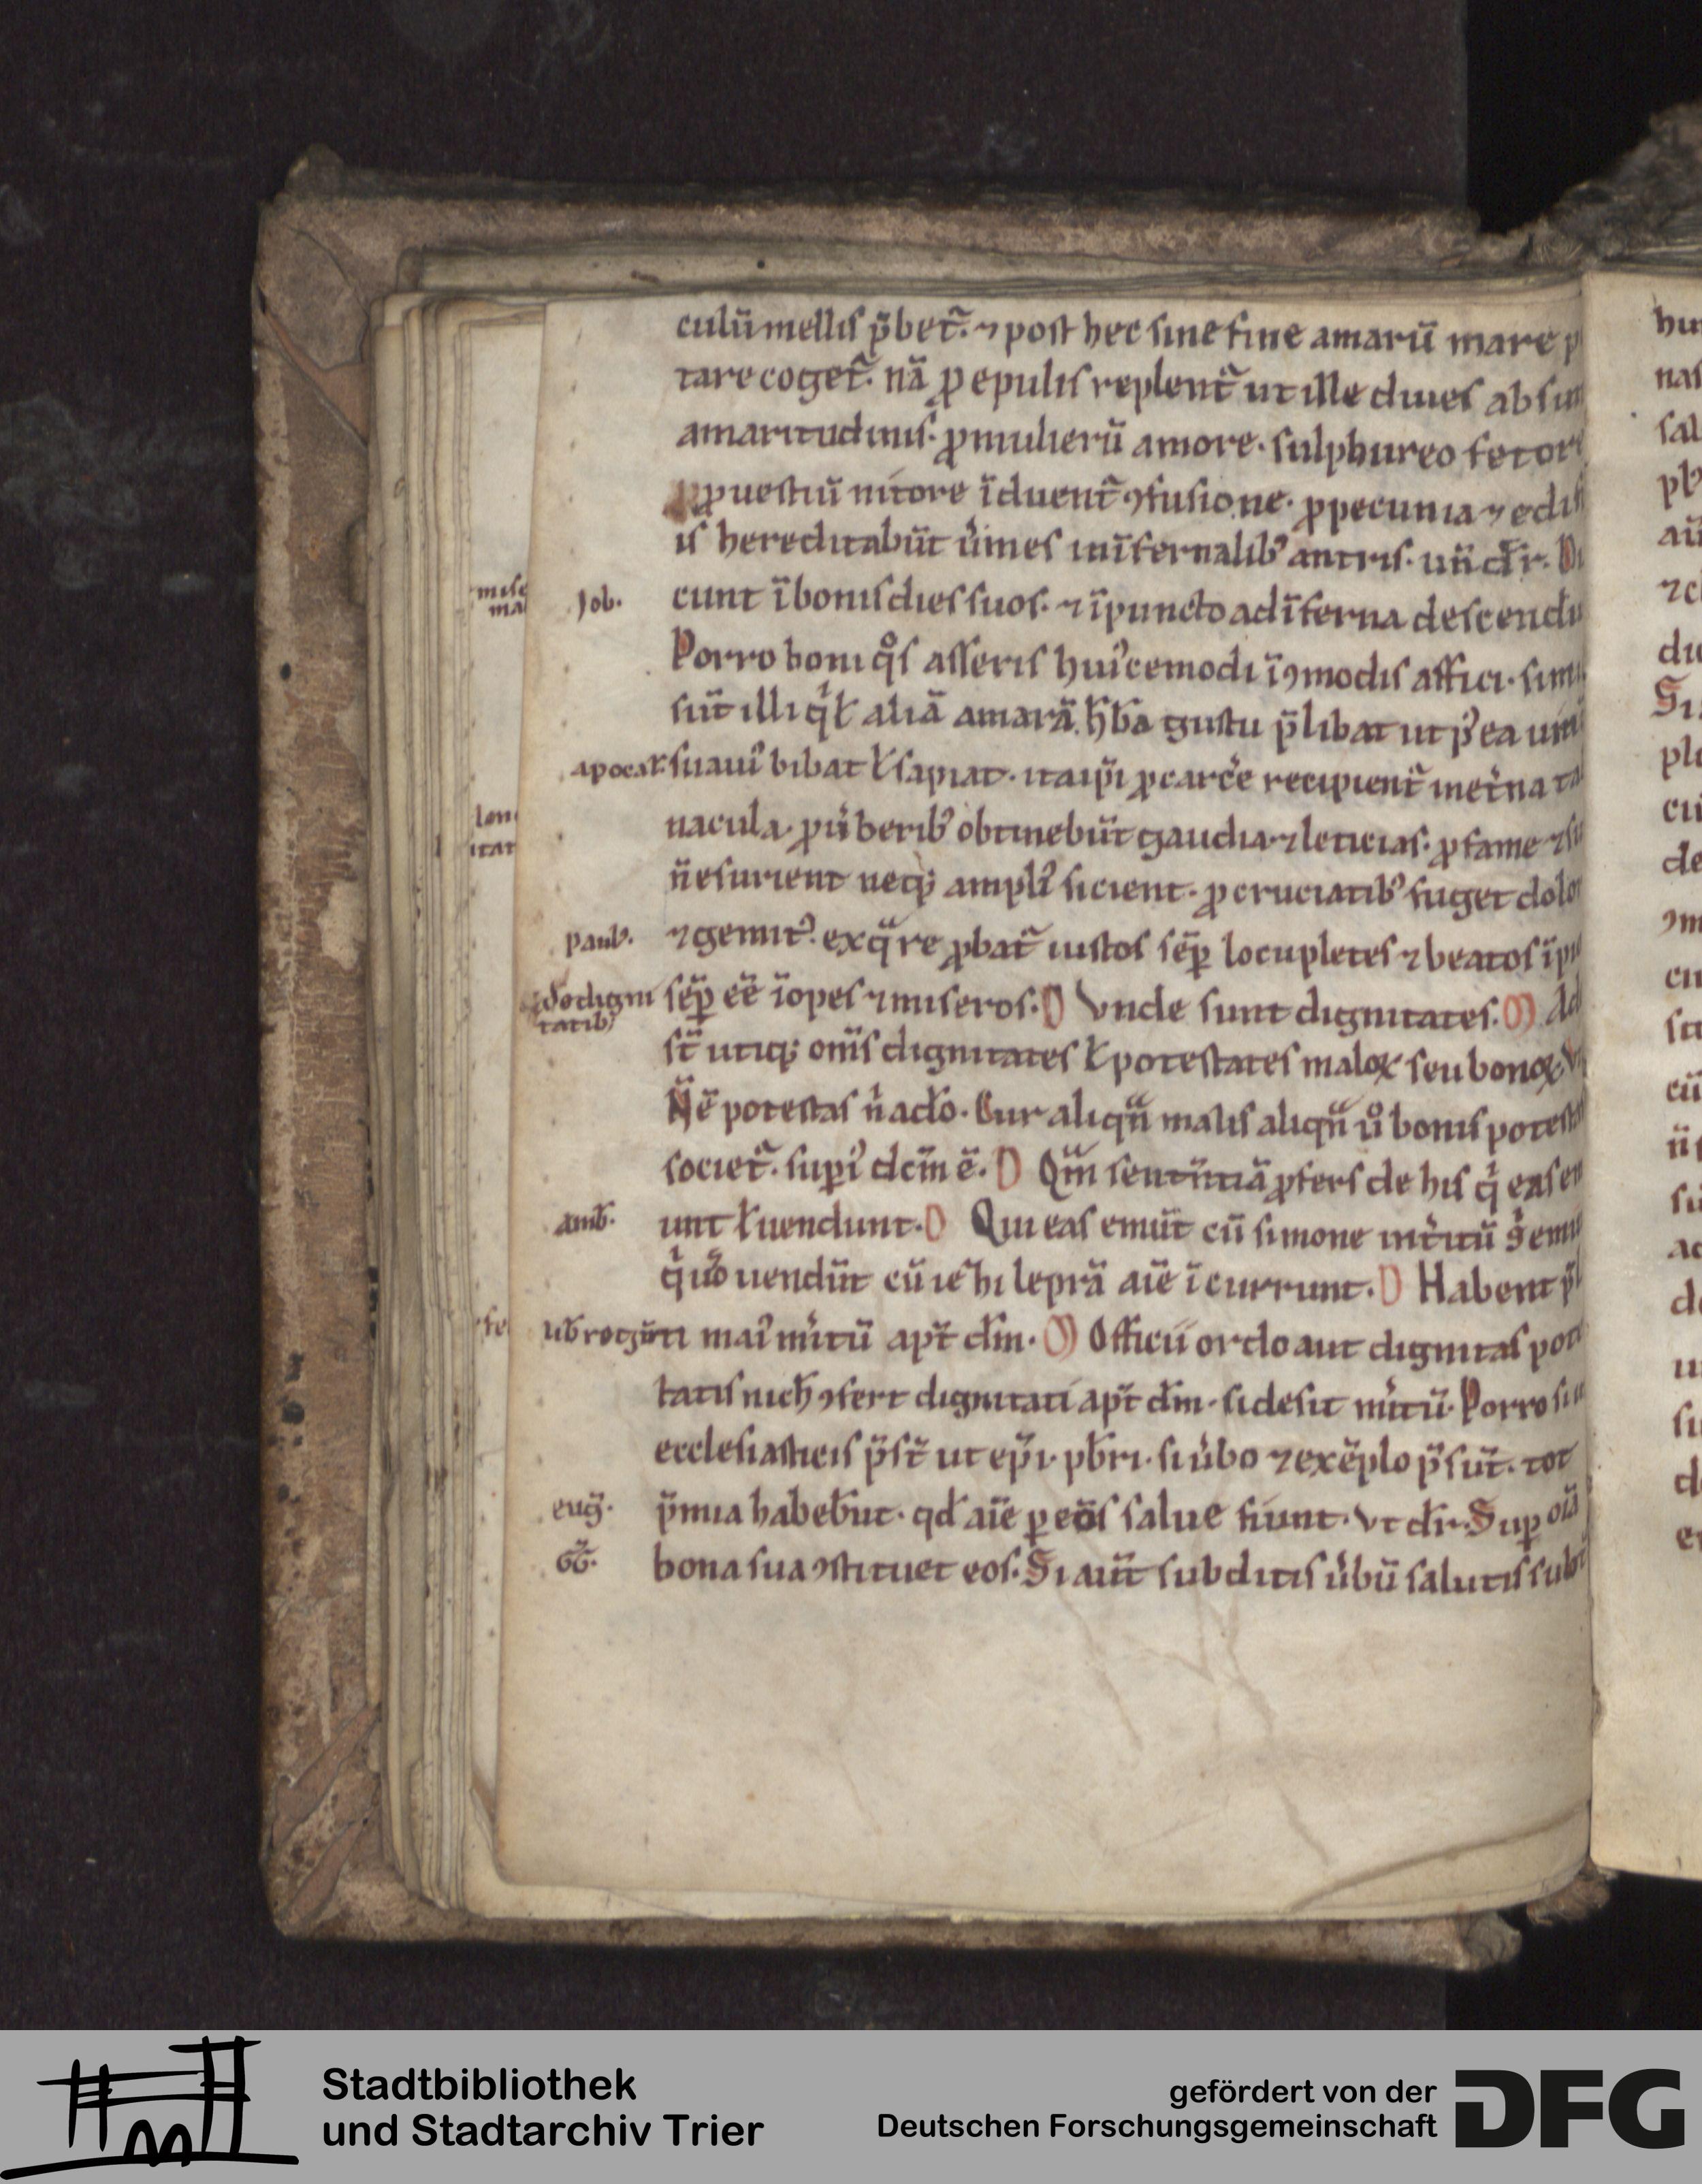 culū mellis p̄bet᷑. ⁊ post hec sine fine amarū mare
tare coget᷑. nā ꝓ epulis replent᷑ ut ille diues absin
amaritudinis. ꝓ mulierū amore. sulphureo fetore
ꝓ uestiū nitore īduent᷑ ꝯfusione. ꝓ pecunia ⁊ edifi
is hereditabūt u̇mes in īfernalibꝰ antris. un̄ dr̄.
Job. cunt ī bonis dies suos. ⁊ ī puncto ad īferna descendu
Porro boni qͦs asseris huiꝰcemodi īꝯmodis affici. simi
sūt illi qͥ ł aliā amarā h̄ba gustu p̄libat ut pꝰea uinū
apocał suauiꝰ bibat ł sapiat. ita ip̄i ꝓ carc̄e recipient᷑ in et̄na ta
nacula. ꝓ u̇beribꝰ obtinebūt gaudia ⁊ leticias. ꝓ fame ⁊ si
n̄ esurient neqꝫ ampliꝰ sicient. ꝓ cruciatibꝰ fuget dolor
paulꝰ. ⁊ gemitꝰ. ex qᷓ re ꝓbat᷑ iustos sēꝑ locupletes ⁊ beatos īpi
de digni sēꝑ ēē īopes ⁊ miseros. D Vnde sunt dignitates. M Ad
tatibꝰ
st̄ utiqꝫ om̄s dignitates ł potestates maloꝝ seu bonoꝝ.
N̄ ē potestas n̄ a do. Cur aliqn̄ malis aliqn̄ uͦ bonis potest
societ᷑. supiꝰ dc̄m ē. D Qm̄ sentn̄tiā ꝓfers de his qͥ eas em
amb̄. unt ł uendunt. D Qui eas emūt cū simone int̄itū
qͥ uͦo uendūt cū ieꝫi leprā aīe īcurrunt. D Habent p̄l
maiꝰ mītū apt̄ dm̄. M Officiū ordo aut dignitas pot
tatis nich̄ ꝯfert dignitati apt̄ dm̄. si desit mītū. Porro si
ecclesiasticis p̄st̄ ut ep̄i. pb̄ri. si u̇bo ⁊ exēplo p̄sūt. tot
eug̃. p̄mia habeb̄nt. qd̄ aīe ꝑ eos salue fiunt. Vt dr̄. Suꝑ oīa
GG̃. bona sua ꝯstituet eos. Si aut̄ subditis u̇bū salutis subt
Stadtbibliothek
und Stadtarchiv Trier
gefördert von der
Deutschen Forschungsgemeinschaft
DFG